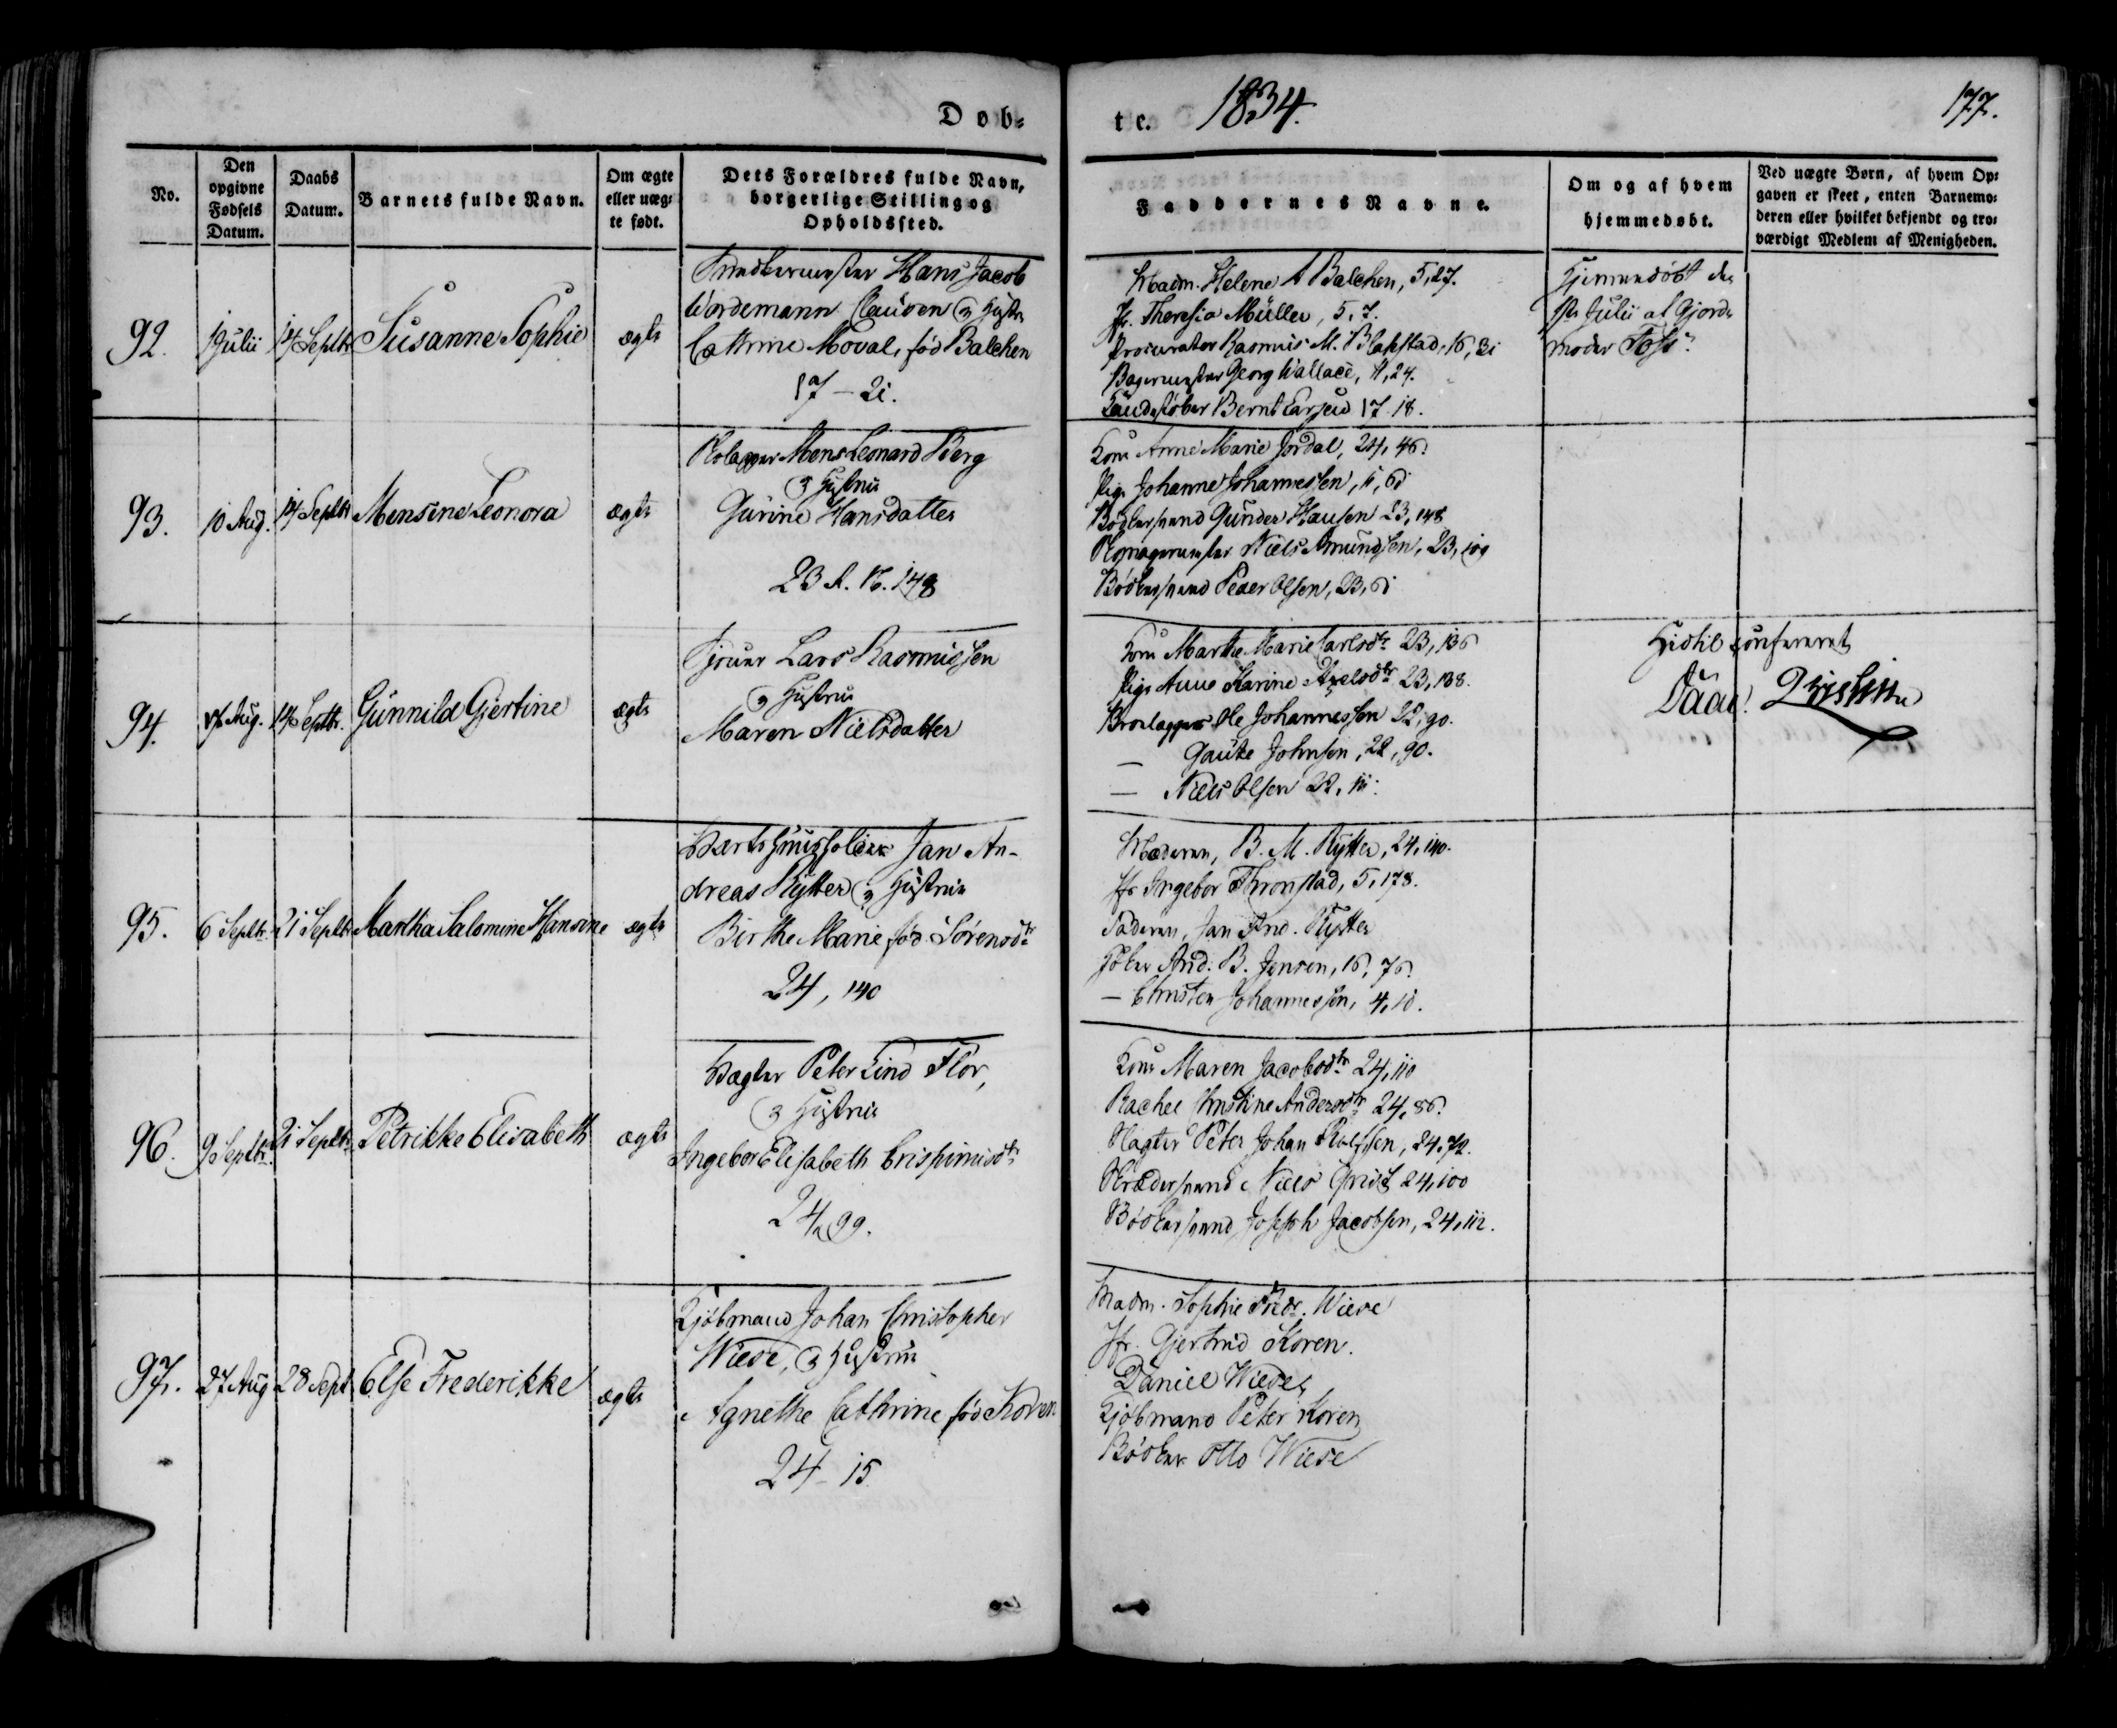 Døb-
te. 1834.
177.
No.
Den opgivne Fødsels Datum.
Daabs Datum.
Barnets fulde Navn.
Om ægte eller uæg- te født.
Dets Forældres fulde Navn, borgerlige Stilling og Opholdssted.
Faddernes Navne.
Om og af hvem hjemmedøbt.
Ved uægte Børn, af hvem Op- gaven er skeet, enten Barnemo- deren eller hvilket bekjendt og tro- værdigt Medlem af Menigheden.
92.
1 Julii
14 Septbr
Susanne Sophie
ægte
Snedkermester Hans Jacob
Wordemann Clausen & Hustru
Cathrine Moval, fød Balchen
17 - 21.
Madm. Helene A Balchen, 5, 27.
Jfr. Thersia Müller, 5, 7.
Procurator Rasmus M. Blakstad, 16, 31
Bagermester Georg Wallace, 11, 24.
Kandestøber Bernt Larsen 17. 18.
Hjemmedøbt den
Julii af Gjorde
moder Foss.
93.
10 Aug.
14 Septbr
Mensine Leonora
ægte
Mons Leonard Berg
& Hustru
Gurine Hansdatter
23 R. N. 148
Kone Anne Marie Jordal, 24, 46.
Pige Johanne Johannessen, 11, 61
Bødkersvend Gunder Hansen 23, 148
Niels Amundsen, 23, 109
Bødkersvend Peder Olsen, 23, 61
94.
Aug.
14 Septbr.
Gunnild Gjertine
ægte
Lars Rasmussen
& Hustru
Maren Nielsdatter
Kone Marthe Marie Carlsdtr 23, 136
Pige Anne Karine Axelsdtr 23, 138.
Brolægger Ole Johannessen 22, 90.
— Gautke Johnsen, 22, 90.
— Niels Olsen 22, 111.
Hidtil confereret
Daae.
95.
6 Septbr.
21 Septbr
Martha Salomine Hansine
ægte
Værtshuusholder Jan An-
dreas Rytter & Hustru
Birthe Marie fød Sørensdtr
24, 140
Moderen, B. M. Rytter, 24, 140.
Jfr Ingebor Thronstad, 5, 178.
Faderen, Jan And. Rytter
Høker And. B. Jensen, 16, 76.
— Christen Johannessen, 4, 10.
96.
9 Septbr.
21 Septbr.
Petrikke Elisabeth
ægte
Vægter Peter Lind Flor,
& Hustru
Ingebor Elisabeth Crispinusdtr
24, 99.
Kone Maren Jacobsdtr 24, 110
Rachel Christine Andersdtr 24, 86.
Slagter Peter Johan Rolfsen, 24, 72.
Skrædersvend Niels Qvist 24, 100
Bødkersvend Joseph Jacobsen, 24, 112.
97.
27 Aug
28 Sept
Else Frederikke
ægte
Kjøbmand Johan Christopher
Wiese, & Hustru
Agnethe Cathrine fød Koren
24 - 15
Madm. Sophie Fredr. Wiese
Jfr. Gjertrud Koren.
Daniel Wiese,
Kjøbmand Peter Koren
Bødker Otto Wiese